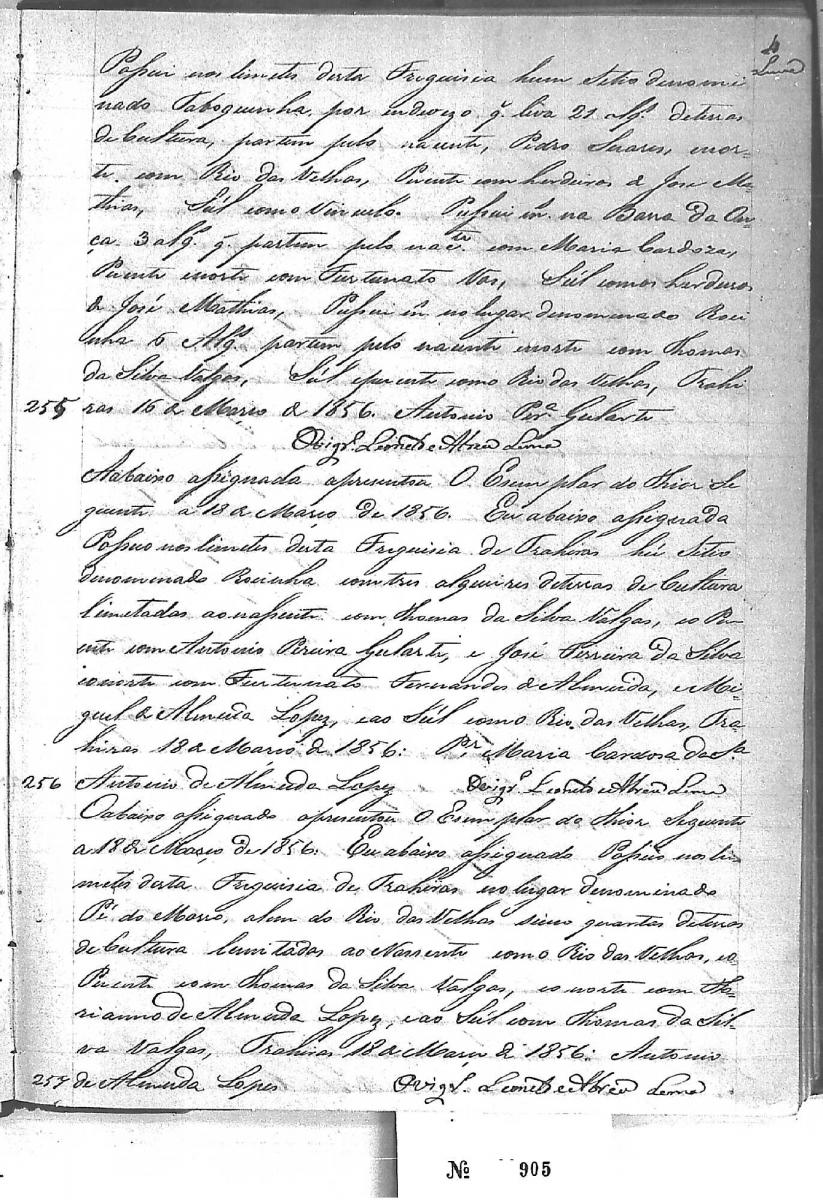 Lema
Possui nos limetes desta Freguisia hum Setio denomi
nado Taboquinha por indevizo q. leva 21 alqs. deterras
de Cultura, partem pelo nacente, Pedro Suares, enor-
te. com Rio das Velhas, Puente com herdeiros de Jose Ma
thias, Sul como Vinculo. Possui in. na Barra da On-
ça 3 alqs. q. partem pelo nacte. com Maria Cardoza,
Puente enorte com Furtunato Vas, Sul comos herdeiros
de José Mathias, Possui in. nolugar denomenado Roci
nha 6 Alqs. partem pelo nacente enorte com Thomas
da Silva Valgas, Sul epuente como Rio das Velhas, Trahi
255 ras 16 de Março de 1856. Antonio Perª Gularte
Ovigro. Leonel de Abreu Lema
Aabaixo assignada apresentou O Esemplar do Thior Se
guente a 18 de Março de 1856. Eu abaixo assignada
Possuo nos limetes desta Freguisia de Trahiras hu Setio
denomenado Rocinha com tres alqueires deterras de Cultura
limetadas ao nassente com Thomas da Silva Valgas, eo Pu
ente com Antonio Pereira Gularte, e José Ferreira da Silva
eonorte com Furtunato Fernandes de Almeida, e Mi
guel de Almeida Lopez, eao Sul como Rio das Velhas, Tra
hiras 18 de Março de 1856: Pr. Maria Cardosa da Sª
256 Antonio de Almeida Lopez Ovigro. Leonel de Abreu Lema
Oabaixo assignado apresentou O Esemplar do Thior Seguente
a 18 de Março de 1856: Eu abaixo assignado Possuo nos li
metes desta Freguisia de Trahiras nolugar denomenado
Pé do Morro, alem do Rio das Velhas sinco quartas deterras
de Cultura lemitadas ao Nassente como Rio das Velhas, eo
Puente com Thomas da Silva Valgas, eo norte com Ma-
rianno de Almeida Lopez, eao Sul com Thomas da Sil-
va Valgas, Trahiras 18 de Março de 1856: Antonio
257 de Almeida Lopes Ovigro. Leonel de Abreu Lema
Nº 905